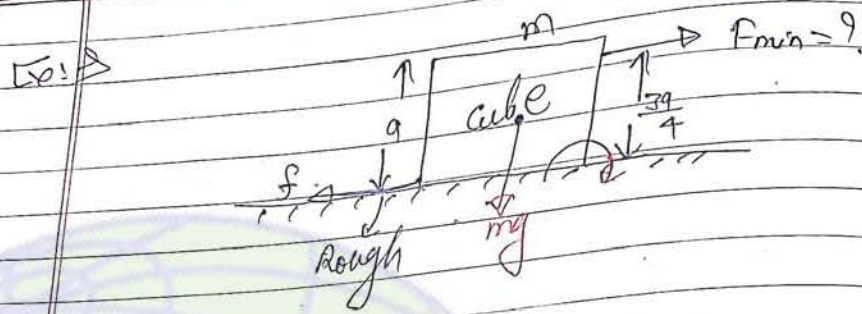 Ex:
m
Fmin = ?
a
cube
3a
4
f
mg
Rough